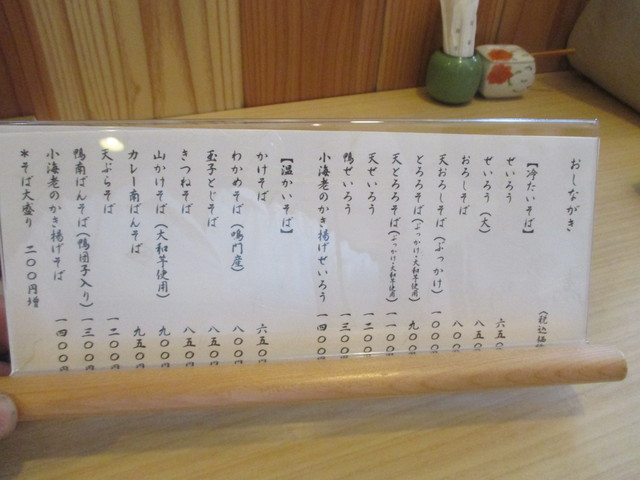 おしながき
（税込価
【冷たいそば】
せいろう 六五〇
せいろう（大） 八五〇
おろしそば 八〇〇
天おろしそば（ぶっかけ） 一〇〇〇
とろろそば（ぶっかけ・大和芋使用） 九〇〇
天とろろそば（ぶっかけ・大和芋使用） 一一〇〇
天せいろう 一二〇〇
鴨せいろう 一三〇〇
小海老のかき揚げせいろう 一四〇〇
【温かいそば】
かけそば 六五〇
わかめそば（鳴門産） 八〇〇
玉子とじそば 八五〇
きつねそば 八五〇
山かけそば（大和芋使用） 九〇〇
カレー南ばんそば 九五〇
天ぷらそば 一二〇〇
鴨南ばんそば（鴨団子入り） 一三〇〇
小海老のかき揚げそば 一四〇〇
＊そば大盛り 二〇〇円増